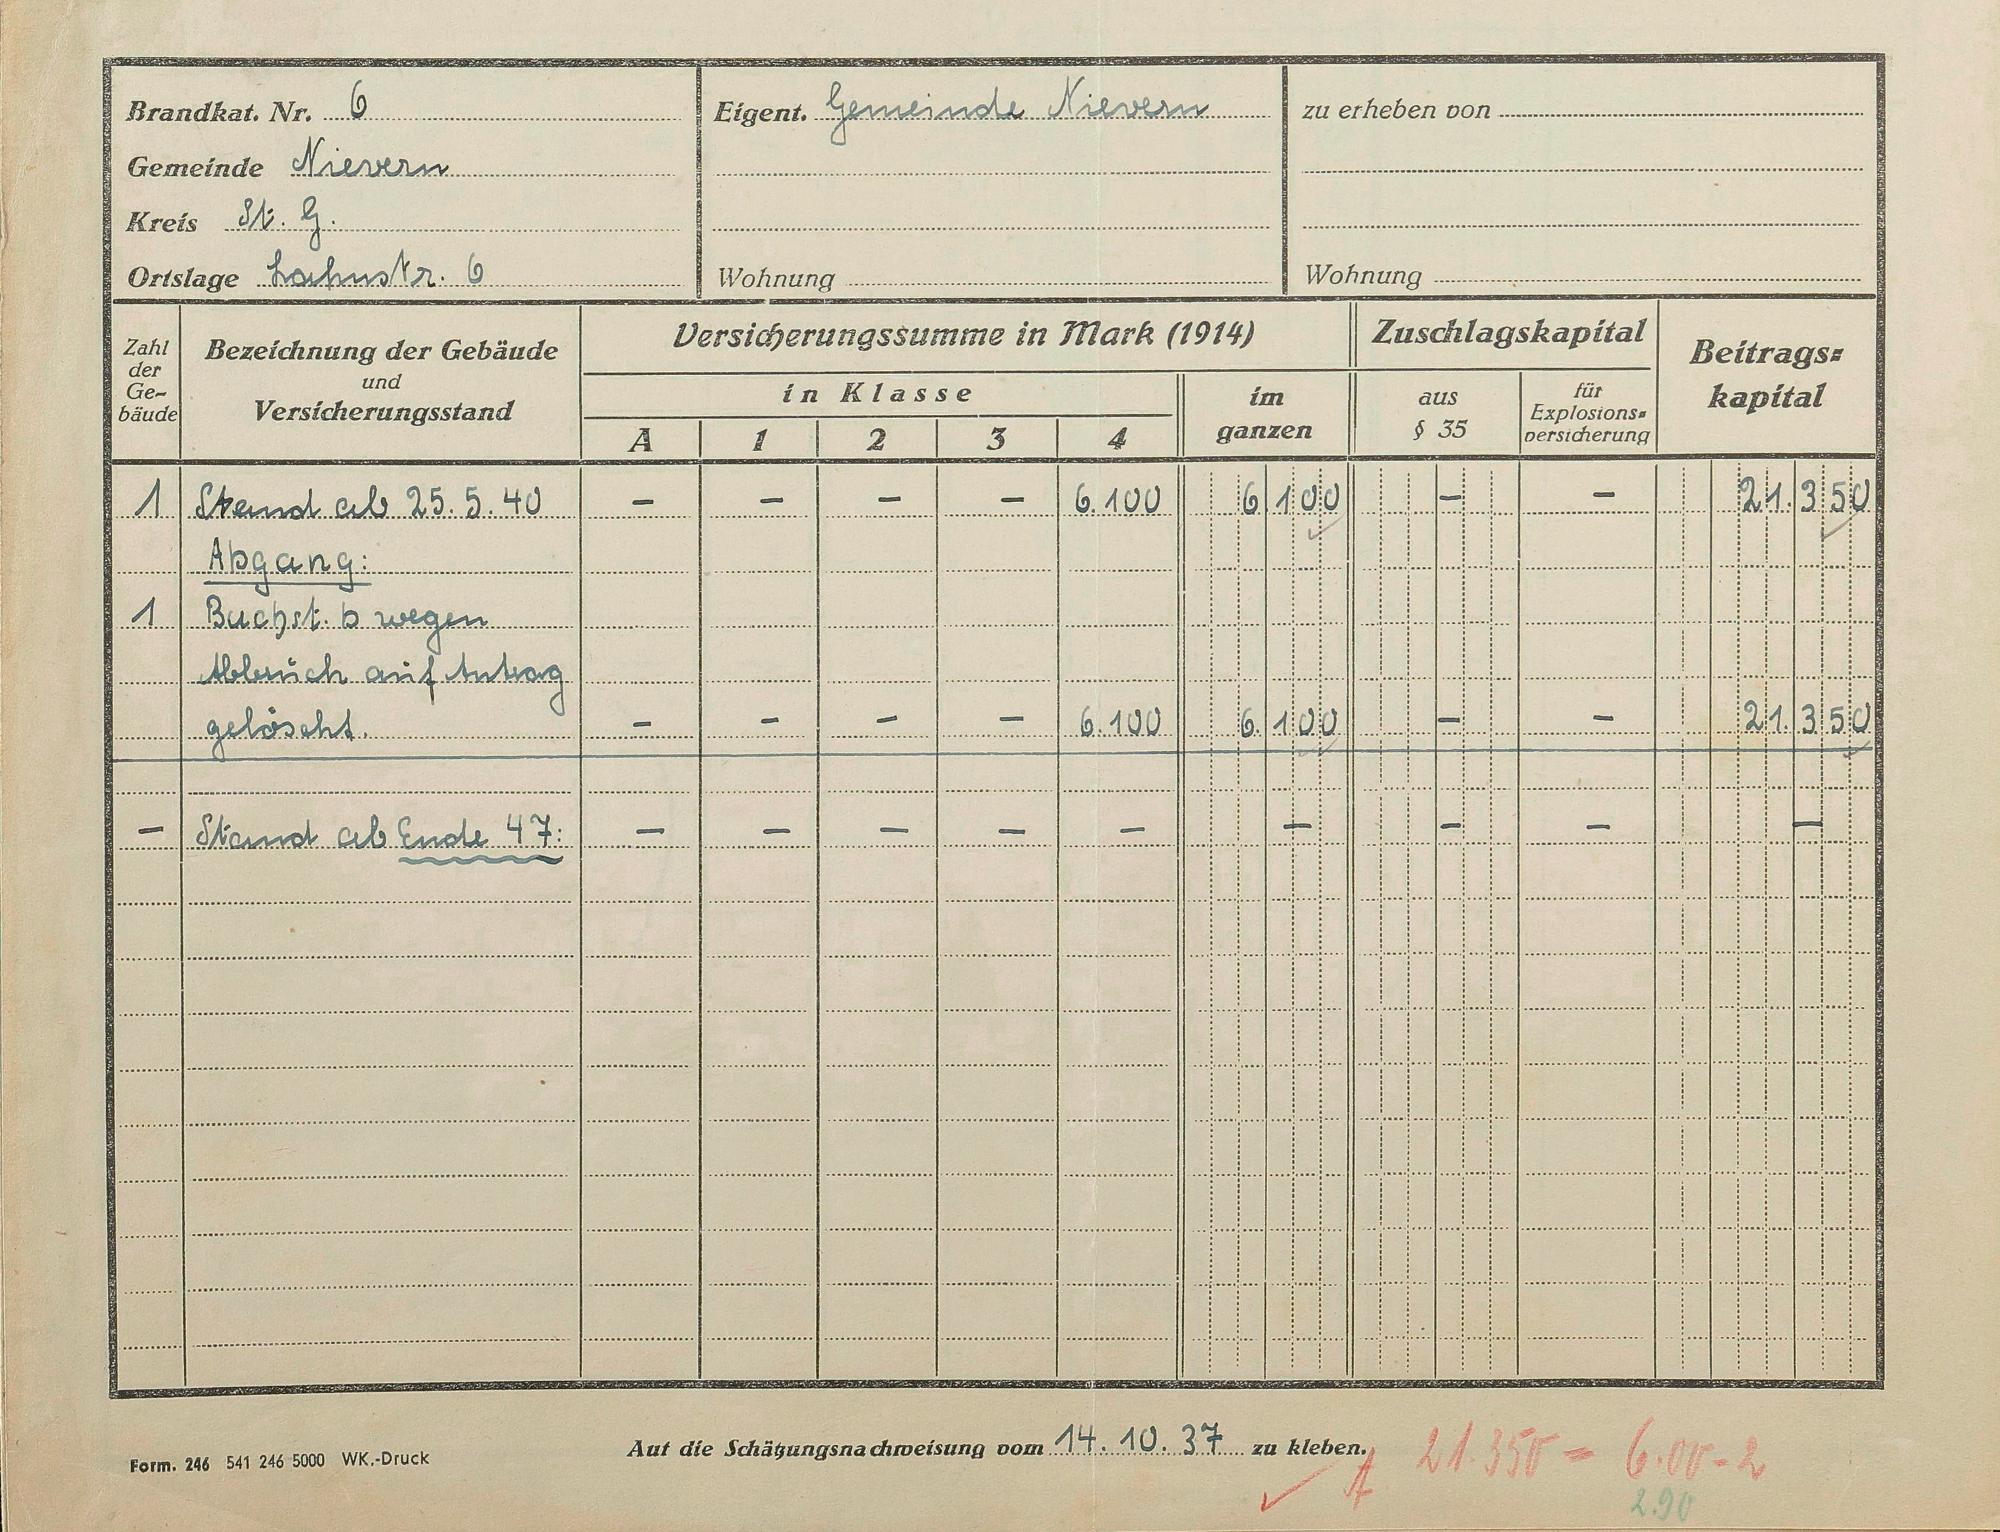 Brandkat. Nr. 6
Gemeinde Nievern
Kreis St. G.
Ortslage Lahnstr. 6
Eigent. Gemeinde Nievern
Wohnung
zu erheben von
Wohnung
Zahl der Ge-bäude
Bezeichnung der Gebäude und Versicherungsstand
Versicherungssumme in Mark (1914)
in Klasse
A 1 2 3 4
im ganzen
Zuschlagskapital
aus § 35
für Explosions=versicherung
Beitrags=kapital
1 Stand ab 25.5.40 – – – – 6.100 6 100 – – 21.350
Abgang:
1 Buchst. b wegen
Abbruch auf Antrag
gelöscht. – – – – 6.100 6.100 – – 21.350
– Stand ab Ende 47: – – – – – – – – –
Form. 246 541 246 5000 WK.-Druck
Auf die Schätzungsnachweisung vom 14. 10. 37 zu kleben.
21.350 = 6.00 - 2
2.90